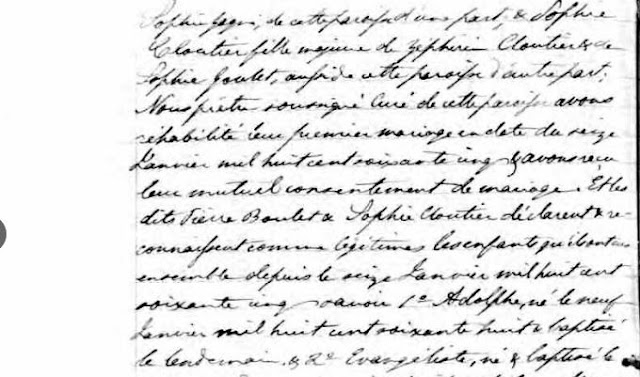 Sophie Gagné, de cette paroisse d'une part, & Sophie
Cloutier fille majeure de Zéphirin Cloutier & de
Sophie Goulet, aussi de cette paroisse d'autre part;
Nous prêtre soussigné Curé de cette paroisse avons
réhabilité leur premier mariage en date du seize
Janvier mil huit cent soixante cinq & avons reçu
leur mutuel consentement de mariage. Et les
dits Pierre Boulet & Sophie Cloutier déclarent & re-
connaissent comme légitimes les enfants qu'ils ont eus
ensemble depuis le seize Janvier mil huit cent
soixante cinq savoir 1º Adolphe, né le neuf
Janvier mil huit cent soixante huit & baptisé
le lendemain. & 2º Evangéliste, né & baptisé le